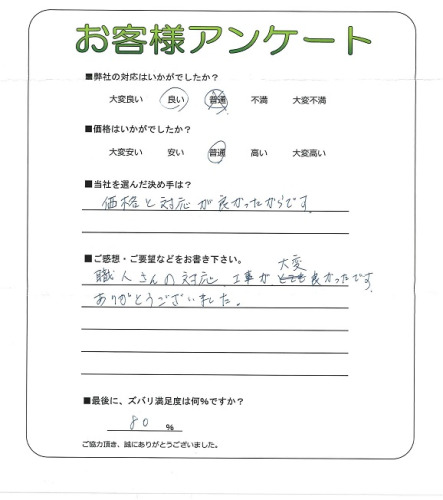 お客様アンケート
■弊社の対応はいかがでしたか?
大変良い 良い 普通 不満 大変不満
■価格はいかがでしたか?
大変安い 安い 普通 高い 大変高い
■当社を選んだ決め手は?
価格と対応が良かったからです。
■ご感想・ご要望などをお書き下さい。
職人さんの対応、工事が大変良かったです。
ありがとうございました。
■最後に、ズバリ満足度は何%ですか?
80 %
ご協力頂き、誠にありがとうございました。